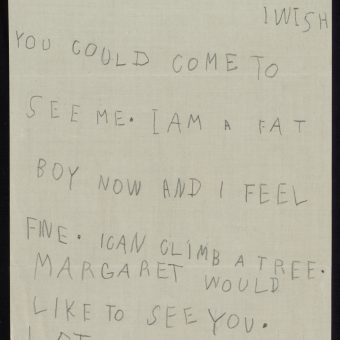 I WISH
YOU COULD COME TO
SEE ME. I AM A FAT
BOY NOW AND I FEEL
FINE. I CAN CLIMB A TREE.
MARGARET WOULD
LIKE TO SEE YOU.